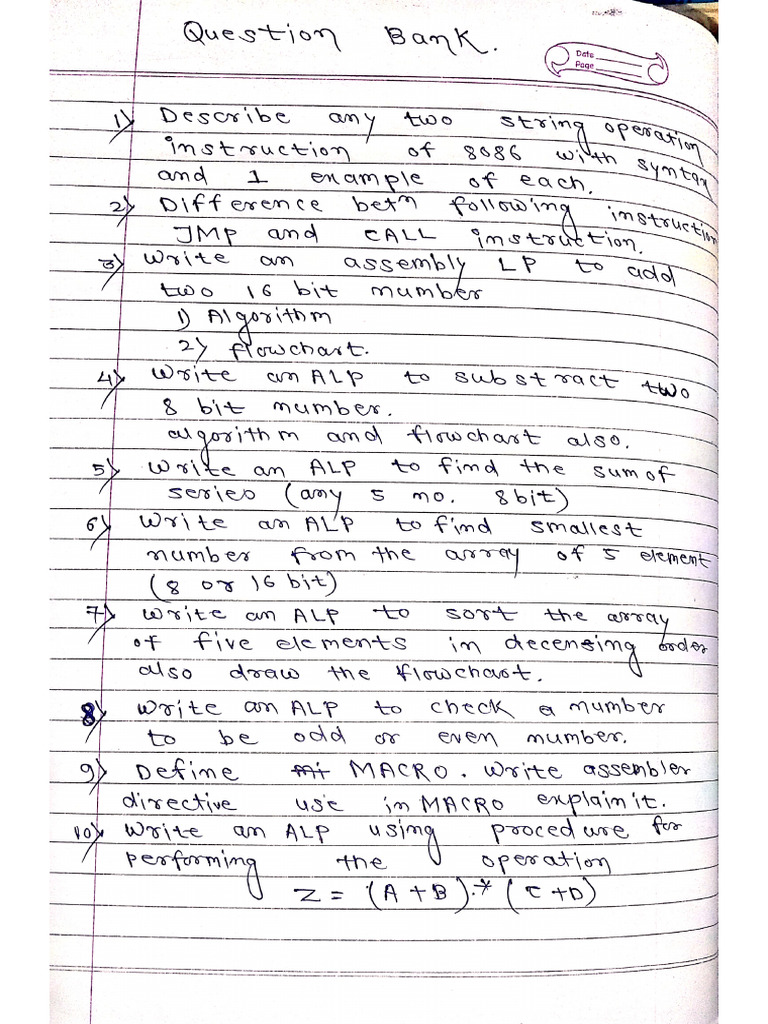 Question Bank.
Date
Page
1) Describe any two string operation
instruction of 8086 with syntax
and 1 example of each.
2) Difference betn following instruction
JMP and CALL instruction.
3) Write an assembly LP to add
two 16 bit number
1) Algorithm
2) flowchart.
4) Write an ALP to substract two
8 bit number.
algorithm and flowchart also.
5) Write an ALP to find the sum of
series (any 5 no. 8bit)
6) Write an ALP to find smallest
number from the array of 5 element
(8 or 16 bit)
7) Write an ALP to sort the array
of five elements in decensing order
also draw the flowchart.
8) Write an ALP to check a number
to be odd or even number.
9) Define MACRO. Write assembler
directive use in MACRO explain it.
10) Write an ALP using procedure for
performing the operation
Z = (A + B).* (C + D)